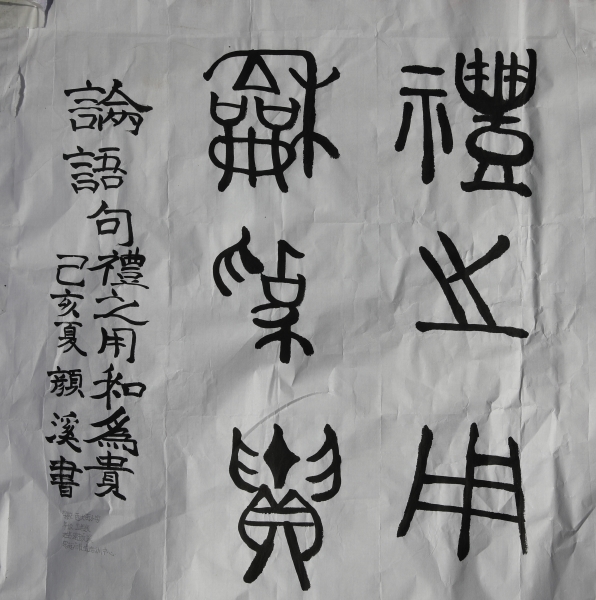 禮之用
龢為貴
論語句禮之用和為貴
己亥夏顏溪書